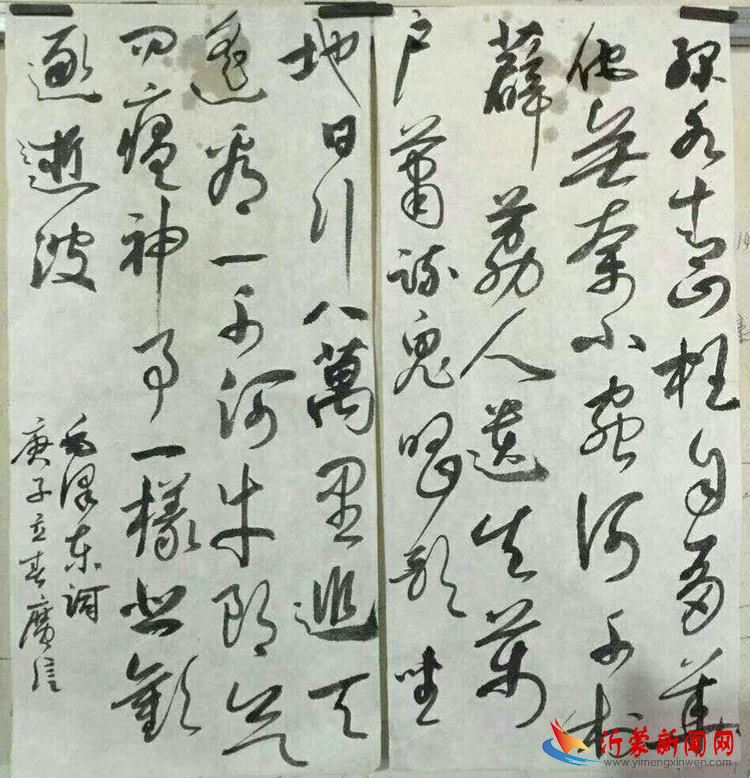 綠水青山枉自多華
佗無奈小蟲何千村
薜荔人遺矢萬
户蕭疏鬼唱歌坐
地日行八萬里巡天
遙看一千河牛郎欲
問瘟神事一樣悲歡
逐逝波
毛澤東詞
庚子立春廣信
沂蒙新闻网
www.yimengxinwen.com